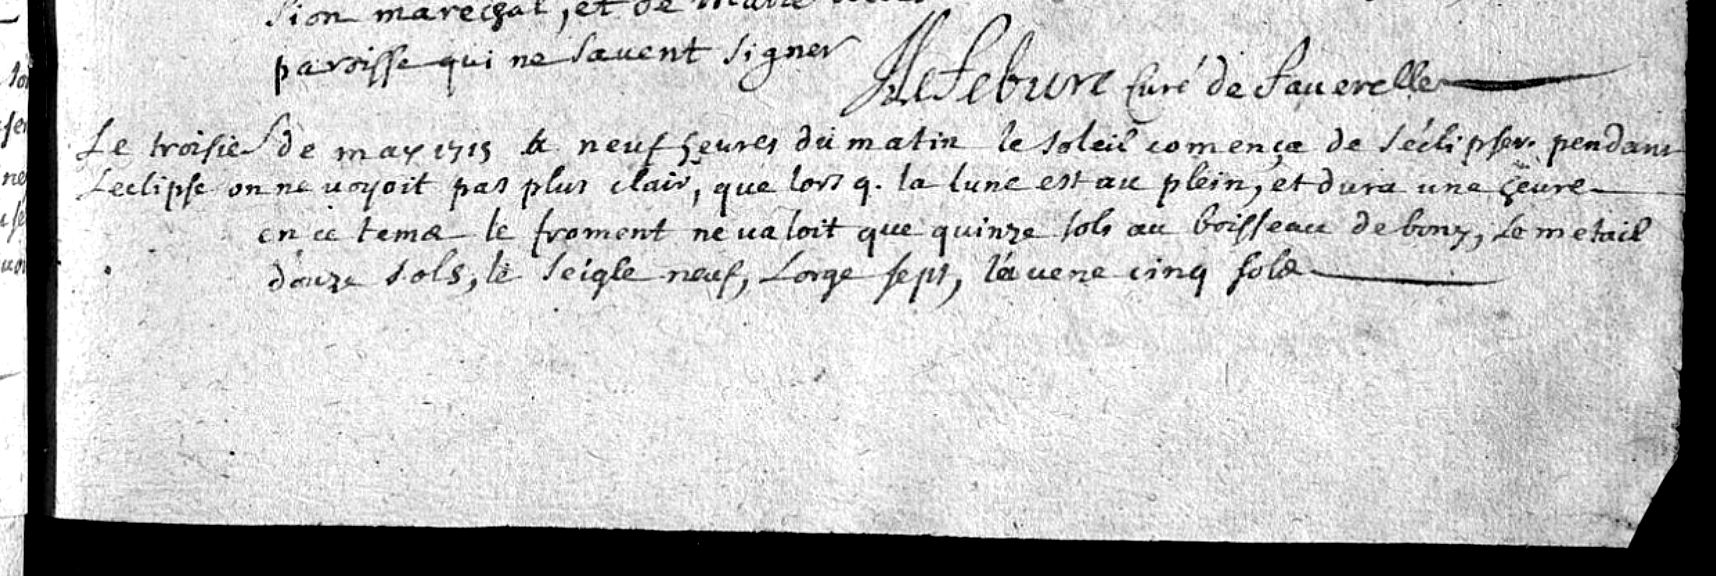 sion marechal, et de marie
paroisse qui ne savent signer
Lefebure Curé de faverelle
Le troisie de may 1715 a neuf heures du matin le soleil comença de s'éclipser. pendant
Leclipse on ne voyoit pas plus clair, que lors q. la lune est au plein, et dura une heure
en ce tems le froment ne valoit que quinze sols au boisseau de bony, Le metail
douze sols, le seigle neuf, Lorge sept, l'avene cinq sols